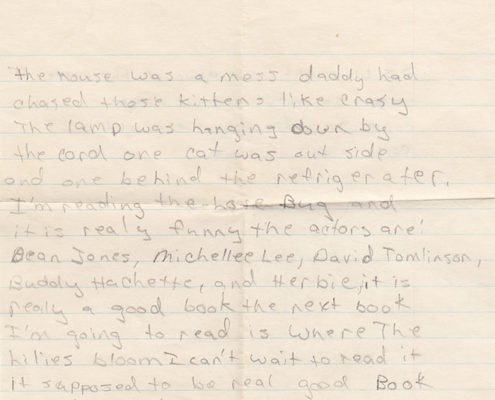 the house was a mess daddy had
chased those kittens like crasy
The lamp was hanging down by
the cord one cat was out side
and one behind the refrigerater.
I'm reading the love Bug and
it is realy funny the actors are:
Dean Jones, Michellee Lee, David Tomlinson,
Buddy Hachette, and Herbie, it is
realy a good book the next book
I'm going to read is Where The
lilies bloom I can't wait to read it
it supposed to be real good Book